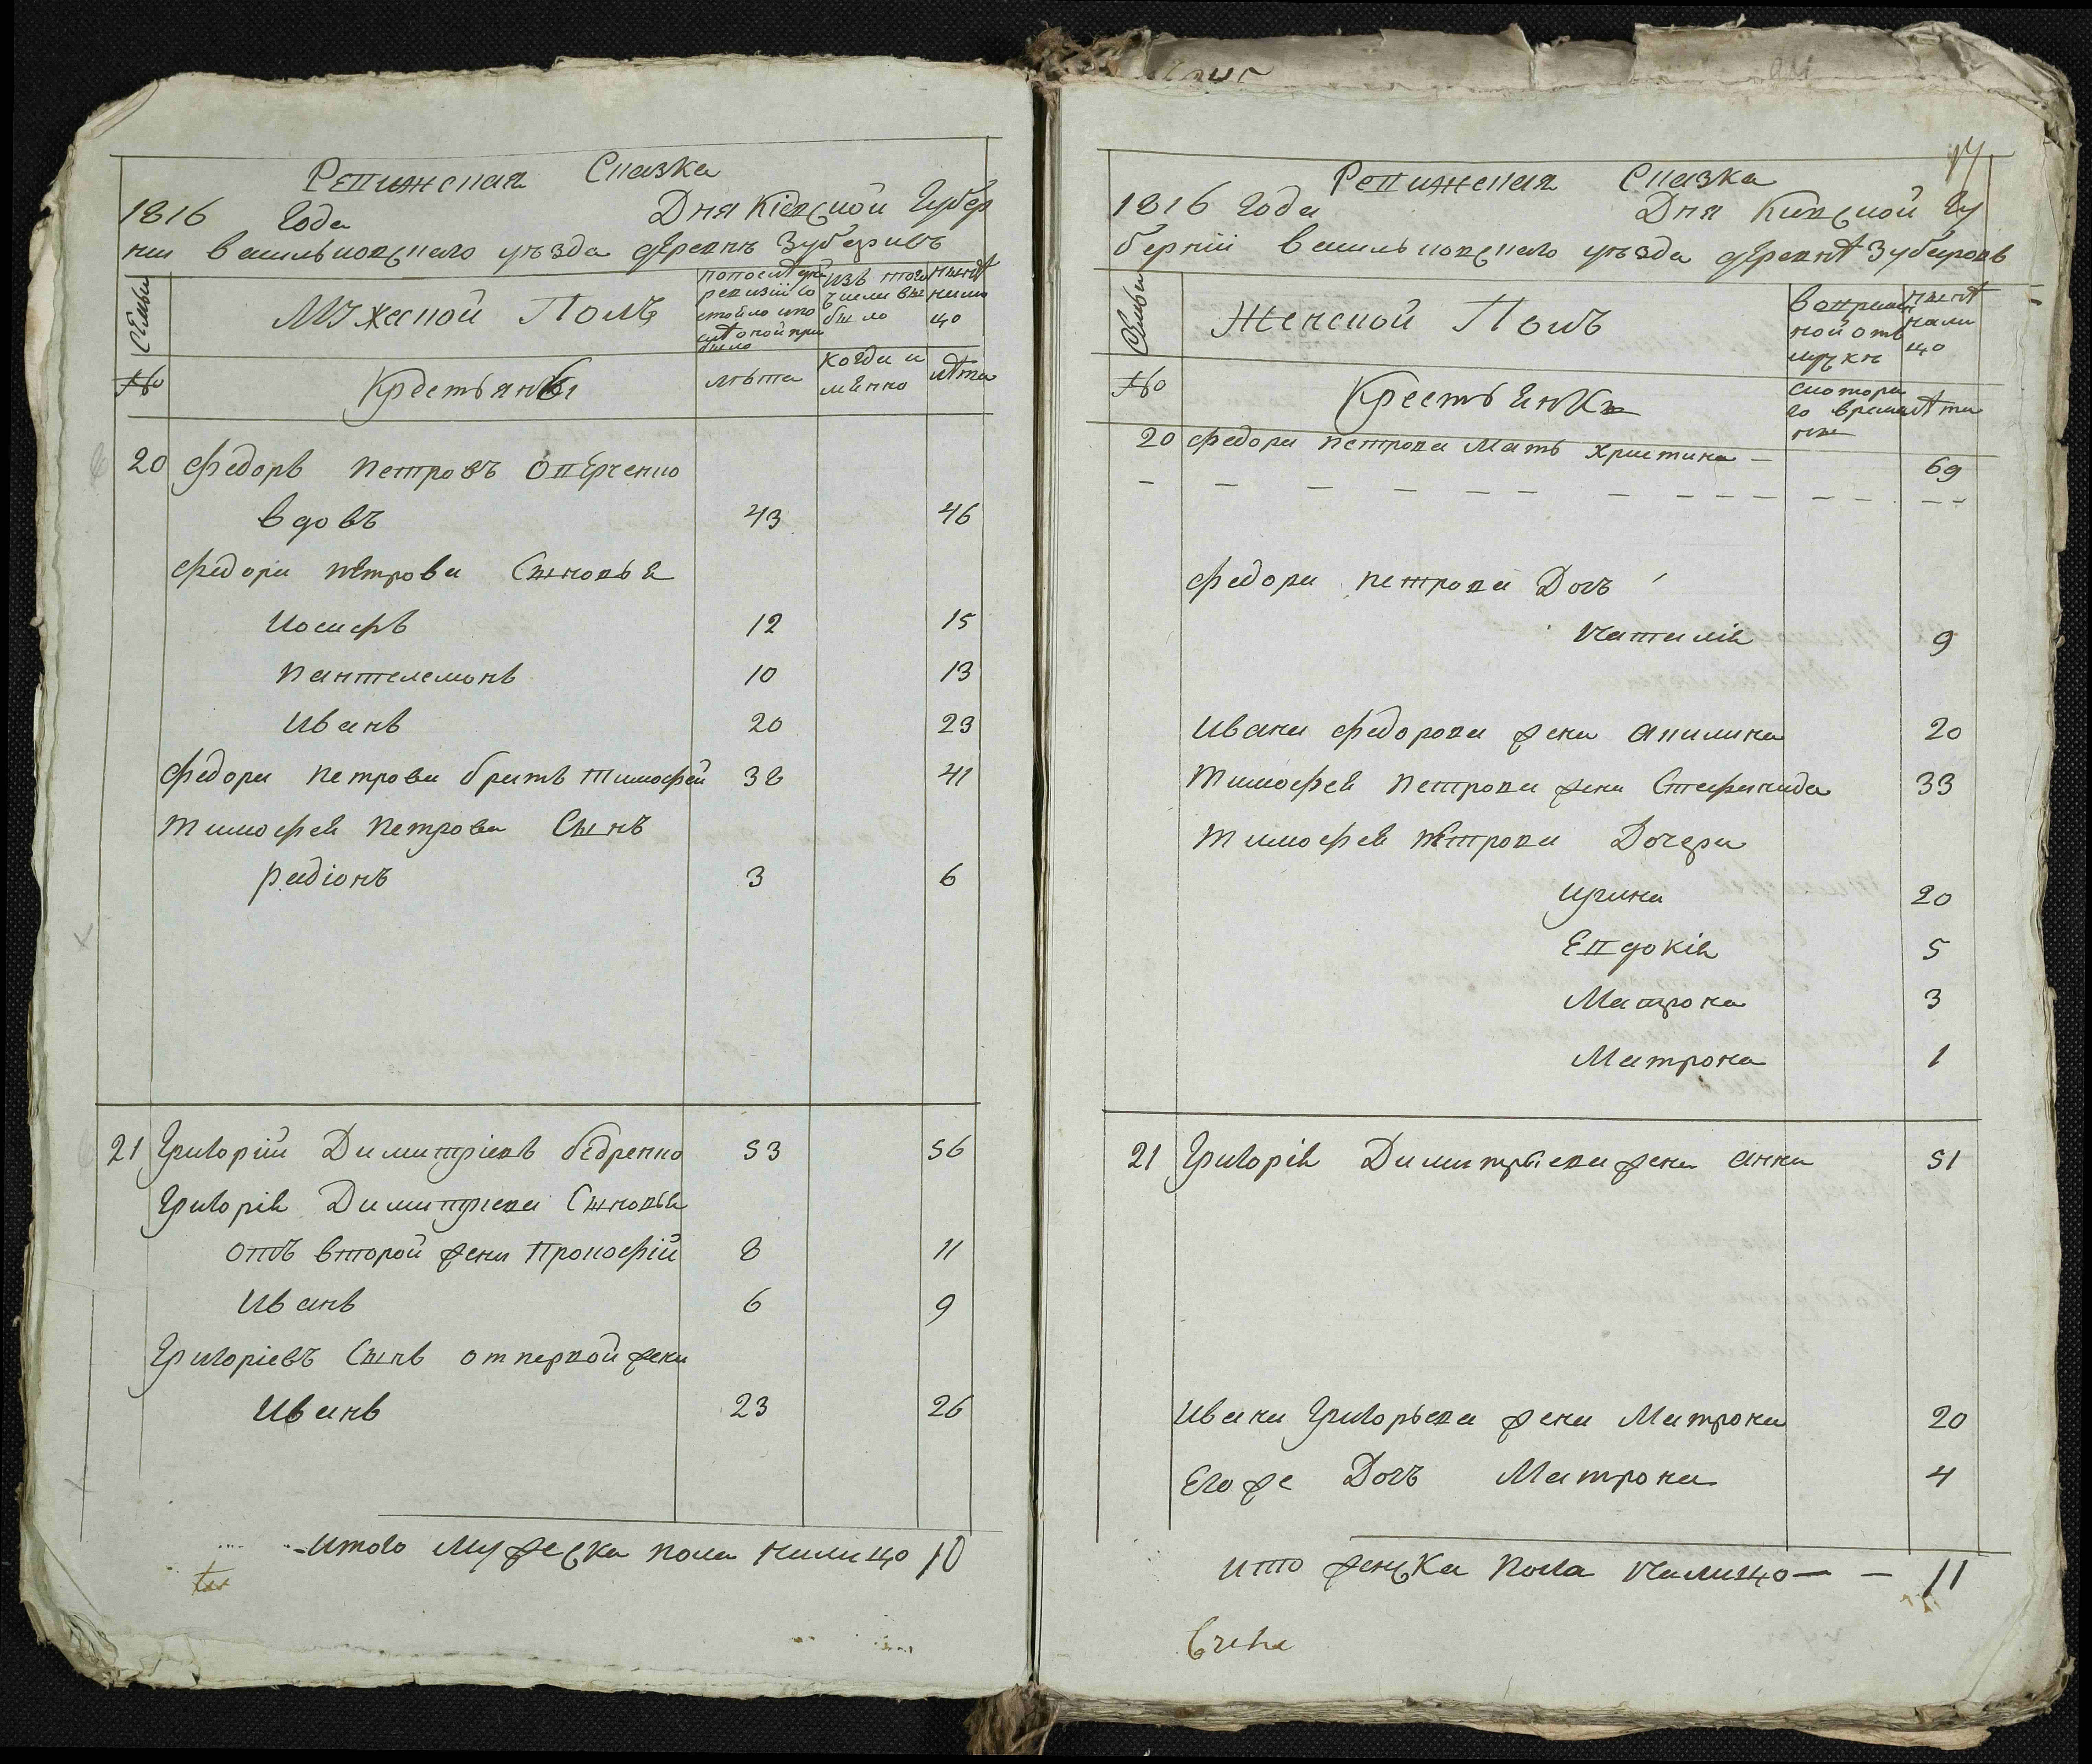 Ревижская Сказка
1816 Года Дня Кіевской Губер
нии Васильковскаго уѣзда деревнѣ Зубаривъ
Семьи
Мужеской Полъ
по последней ревизіи состояло и после оной прибыло
изъ того числа выбыло
нынѣ на лицо
№
Крестьяны
лѣта
когда именно
лѣта
20 Федоръ Петровъ Оверченко
вдовъ 43 46
Федора Петрова Сыновья
Иосифъ 12 15
Пантелемонъ 10 13
Иванъ 20 23
Федора Петрова братъ Тимофей 38 41
Тимофея Петрова Сынъ
Радіонъ 3 6
21 Григорій Димитріевъ бедренко 53 56
Григорія Димитріева Сыновья
отъ второй жены Прокофій 8 11
Иванъ 6 9
Григоріевъ Сынъ от первой жены
Иванъ 23 26
Итого Мужеска пола налицо 10
17
Ревижская Сказка
1816 Года Дня Киевской Гу
берніи Васильковскаго уѣзда деревнѣ Зубаровъ
Семьи
Женской Полъ
во временной отлучкѣ
нынѣ налицо
№
Крестьянки
с котораго времени
лѣта
20 Федора Петрова Мать Христина 69
Федора Петрова Дочь
Наталія 9
Ивана Федорова жена Акилина 20
Тимофея Петрова жена Стефанида 33
Тимофея Петрова Дочери
Ирина 20
Евдокія 5
Матрона 3
Матрона 1
21 Григорія Димитрыева жена Анна 51
Ивана Григорьева жена Матрона 20
Его же Дочь Матрона 4
Ито женска Пола Налицо 11